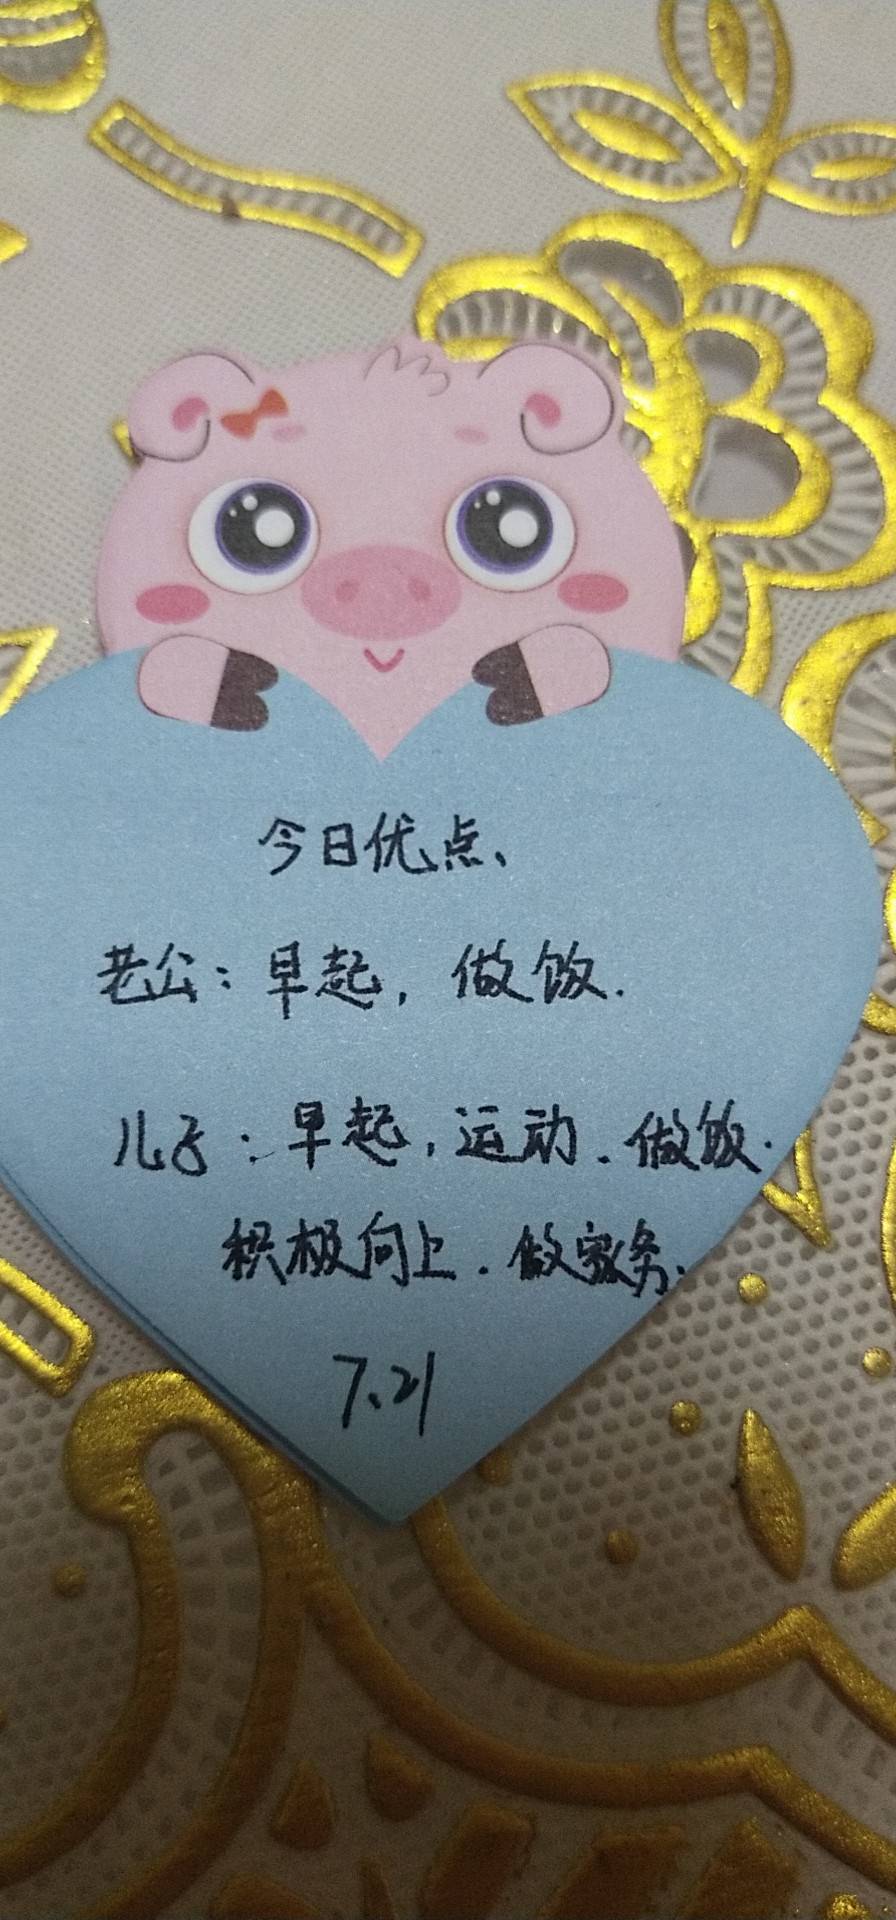 今日优点、
老公：早起，做饭.
儿子：早起，运动.做饭.
积极向上.做家务.
7、21